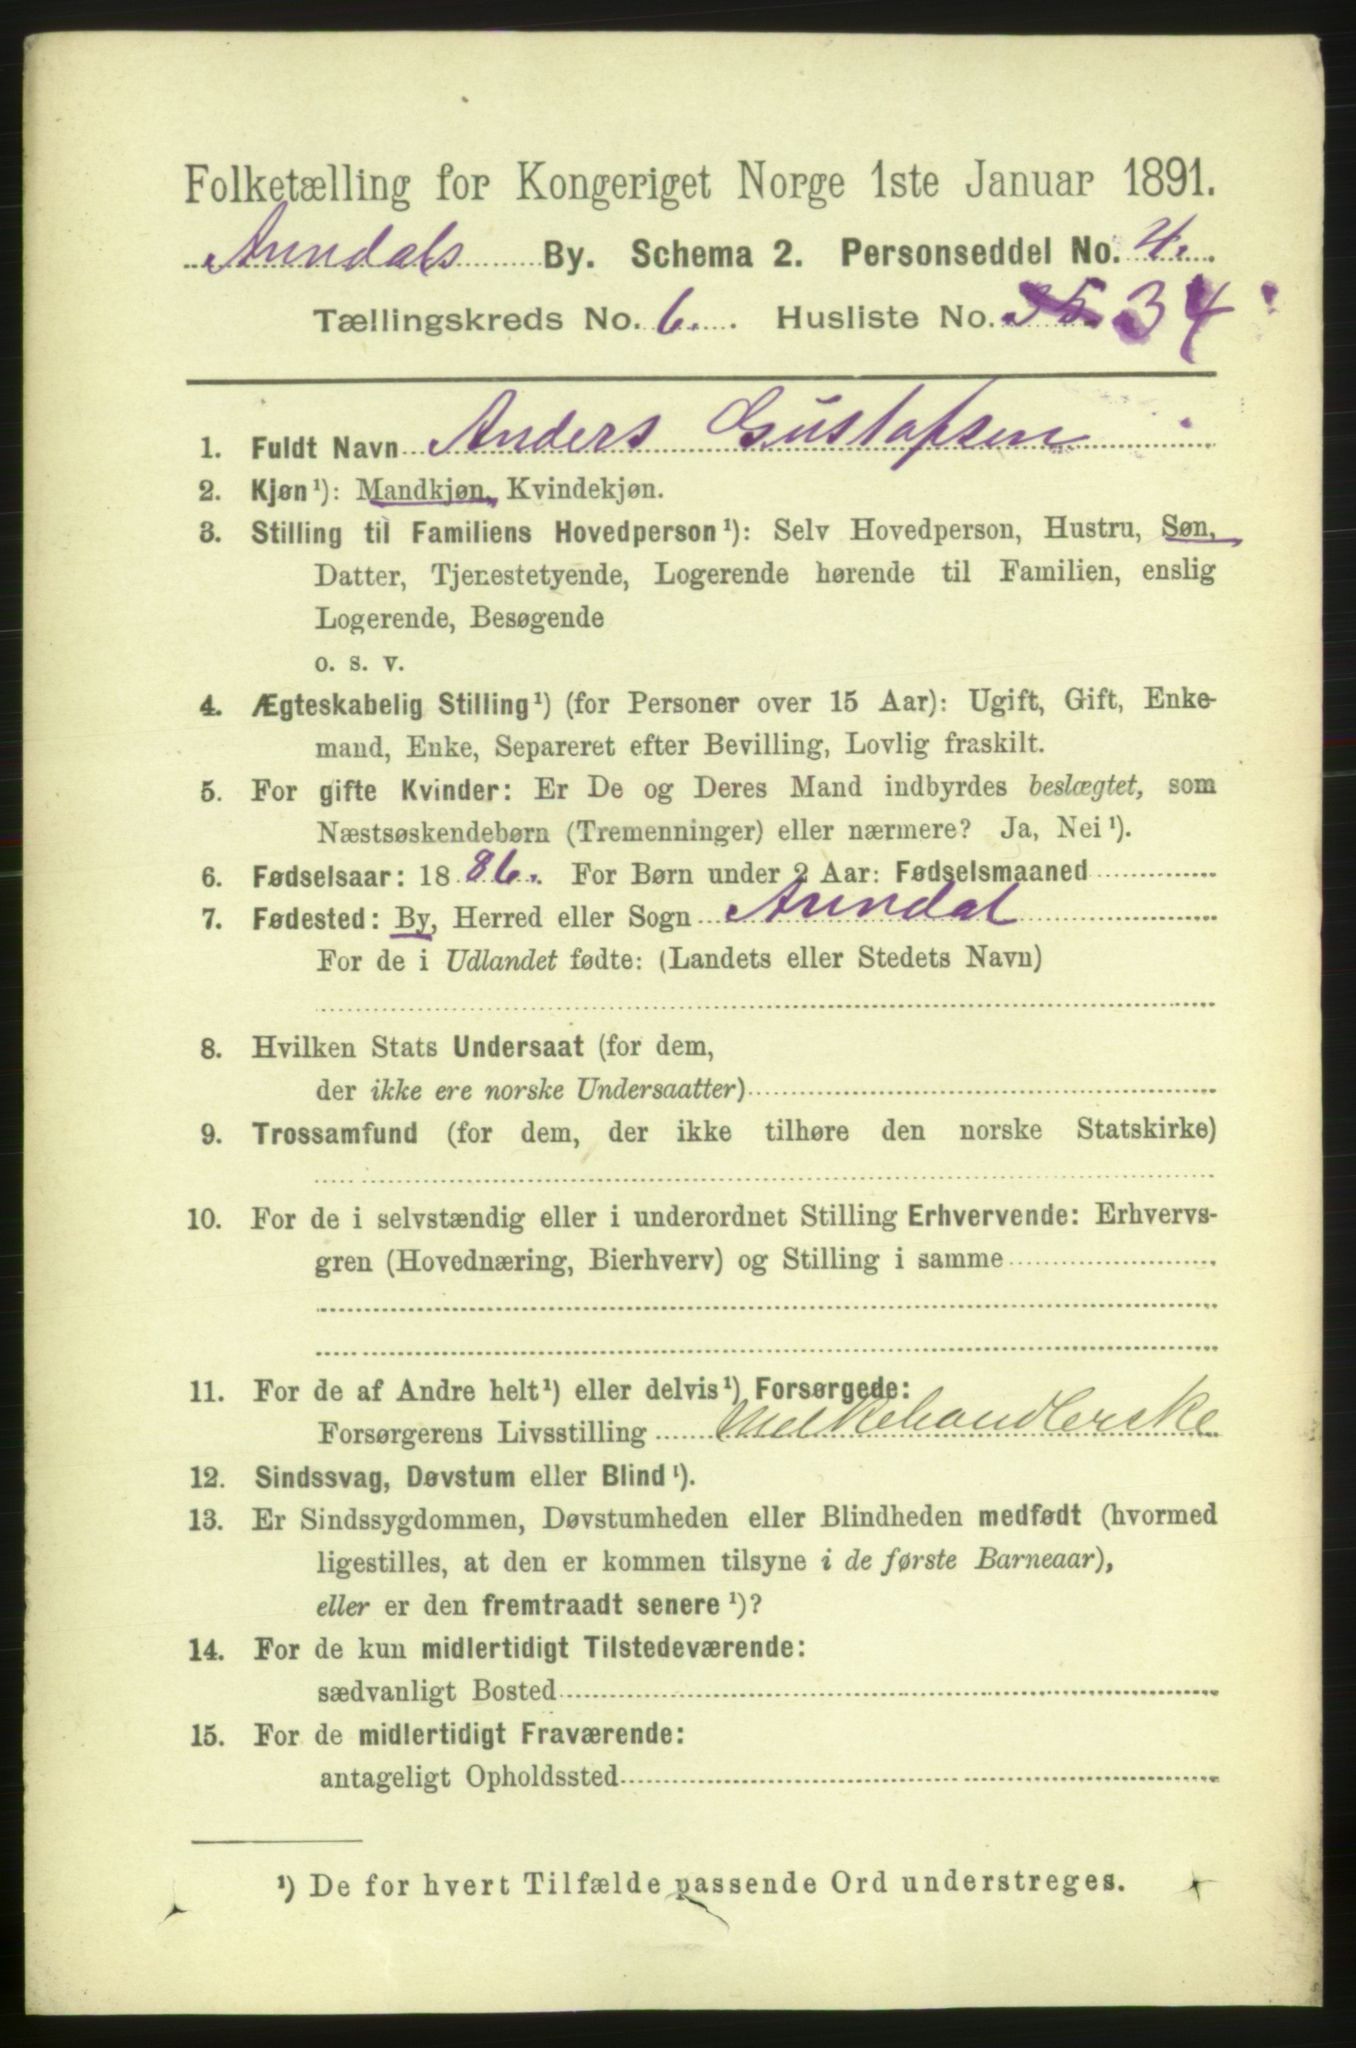 Folketælling for Kongeriget Norge 1ste Januar 1891.
Arendals By. Schema 2. Personseddel No. 4.
Tællingskreds No. 6. Husliste No. 35. 34
1. Fuldt Navn Anders Gustafsen
2. Kjøn¹): Mandkjøn, Kvindekjøn.
3. Stilling til Familiens Hovedperson¹): Selv Hovedperson, Hustru, Søn,
Datter, Tjenestetyende, Logerende hørende til Familien, enslig
Logerende, Besøgende
o. s. v.
4. Ægteskabelig Stilling¹) (for Personer over 15 Aar): Ugift, Gift, Enke-
mand, Enke, Separeret efter Bevilling, Lovlig fraskilt.
5. For gifte Kvinder: Er De og Deres Mand indbyrdes beslægtet, som
Næstsøskendebørn (Tremenninger) eller nærmere? Ja, Nei¹).
6. Fødselsaar: 1886. For Børn under 2 Aar: Fødselsmaaned
7. Fødested: By, Herred eller Sogn Arendal
For de i Udlandet fødte: (Landets eller Stedets Navn)
8. Hvilken Stats Undersaat (for dem,
der ikke ere norske Undersaatter)
9. Trossamfund (for dem, der ikke tilhøre den norske Statskirke)
10. For de i selvstændig eller i underordnet Stilling Erhvervende: Erhvervs-
gren (Hovednæring, Bierhverv) og Stilling i samme
11. For de af Andre helt¹) eller delvis¹) Forsørgede:
Forsørgerens Livsstilling Melkehandlerske
12. Sindssvag, Døvstum eller Blind¹).
13. Er Sindssygdommen, Døvstumheden eller Blindheden medfødt (hvormed
ligestilles, at den er kommen tilsyne i de første Barneaar),
eller er den fremtraadt senere¹)?
14. For de kun midlertidigt Tilstedeværende:
sædvanligt Bosted
15. For de midlertidigt Fraværende:
antageligt Opholdssted
¹) De for hvert Tilfælde passende Ord understreges.